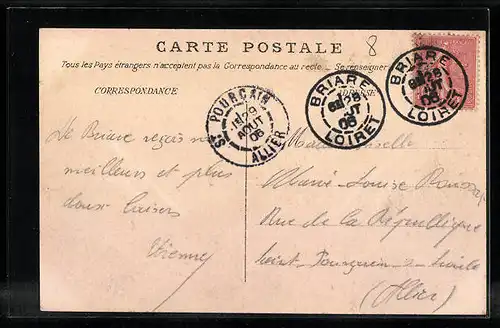 CARTE POSTALE
8
Tous les Pays étrangers n'acceptent pas la Correspondance au recto. — Se renseigner
CORRESPONDANCE
ADRESSE
BRIARE
28
06
LOIRET
BRIARE
28
06
LOIRET
ST POURCAIN
29
AOUT
06
ALLIER
De Briare reçois mes
meilleurs et plus
doux baisers
Etienne
Mademoiselle
Marie-Louise
Rue de la République
Saint Pourçain s. Sioule
(Allier)